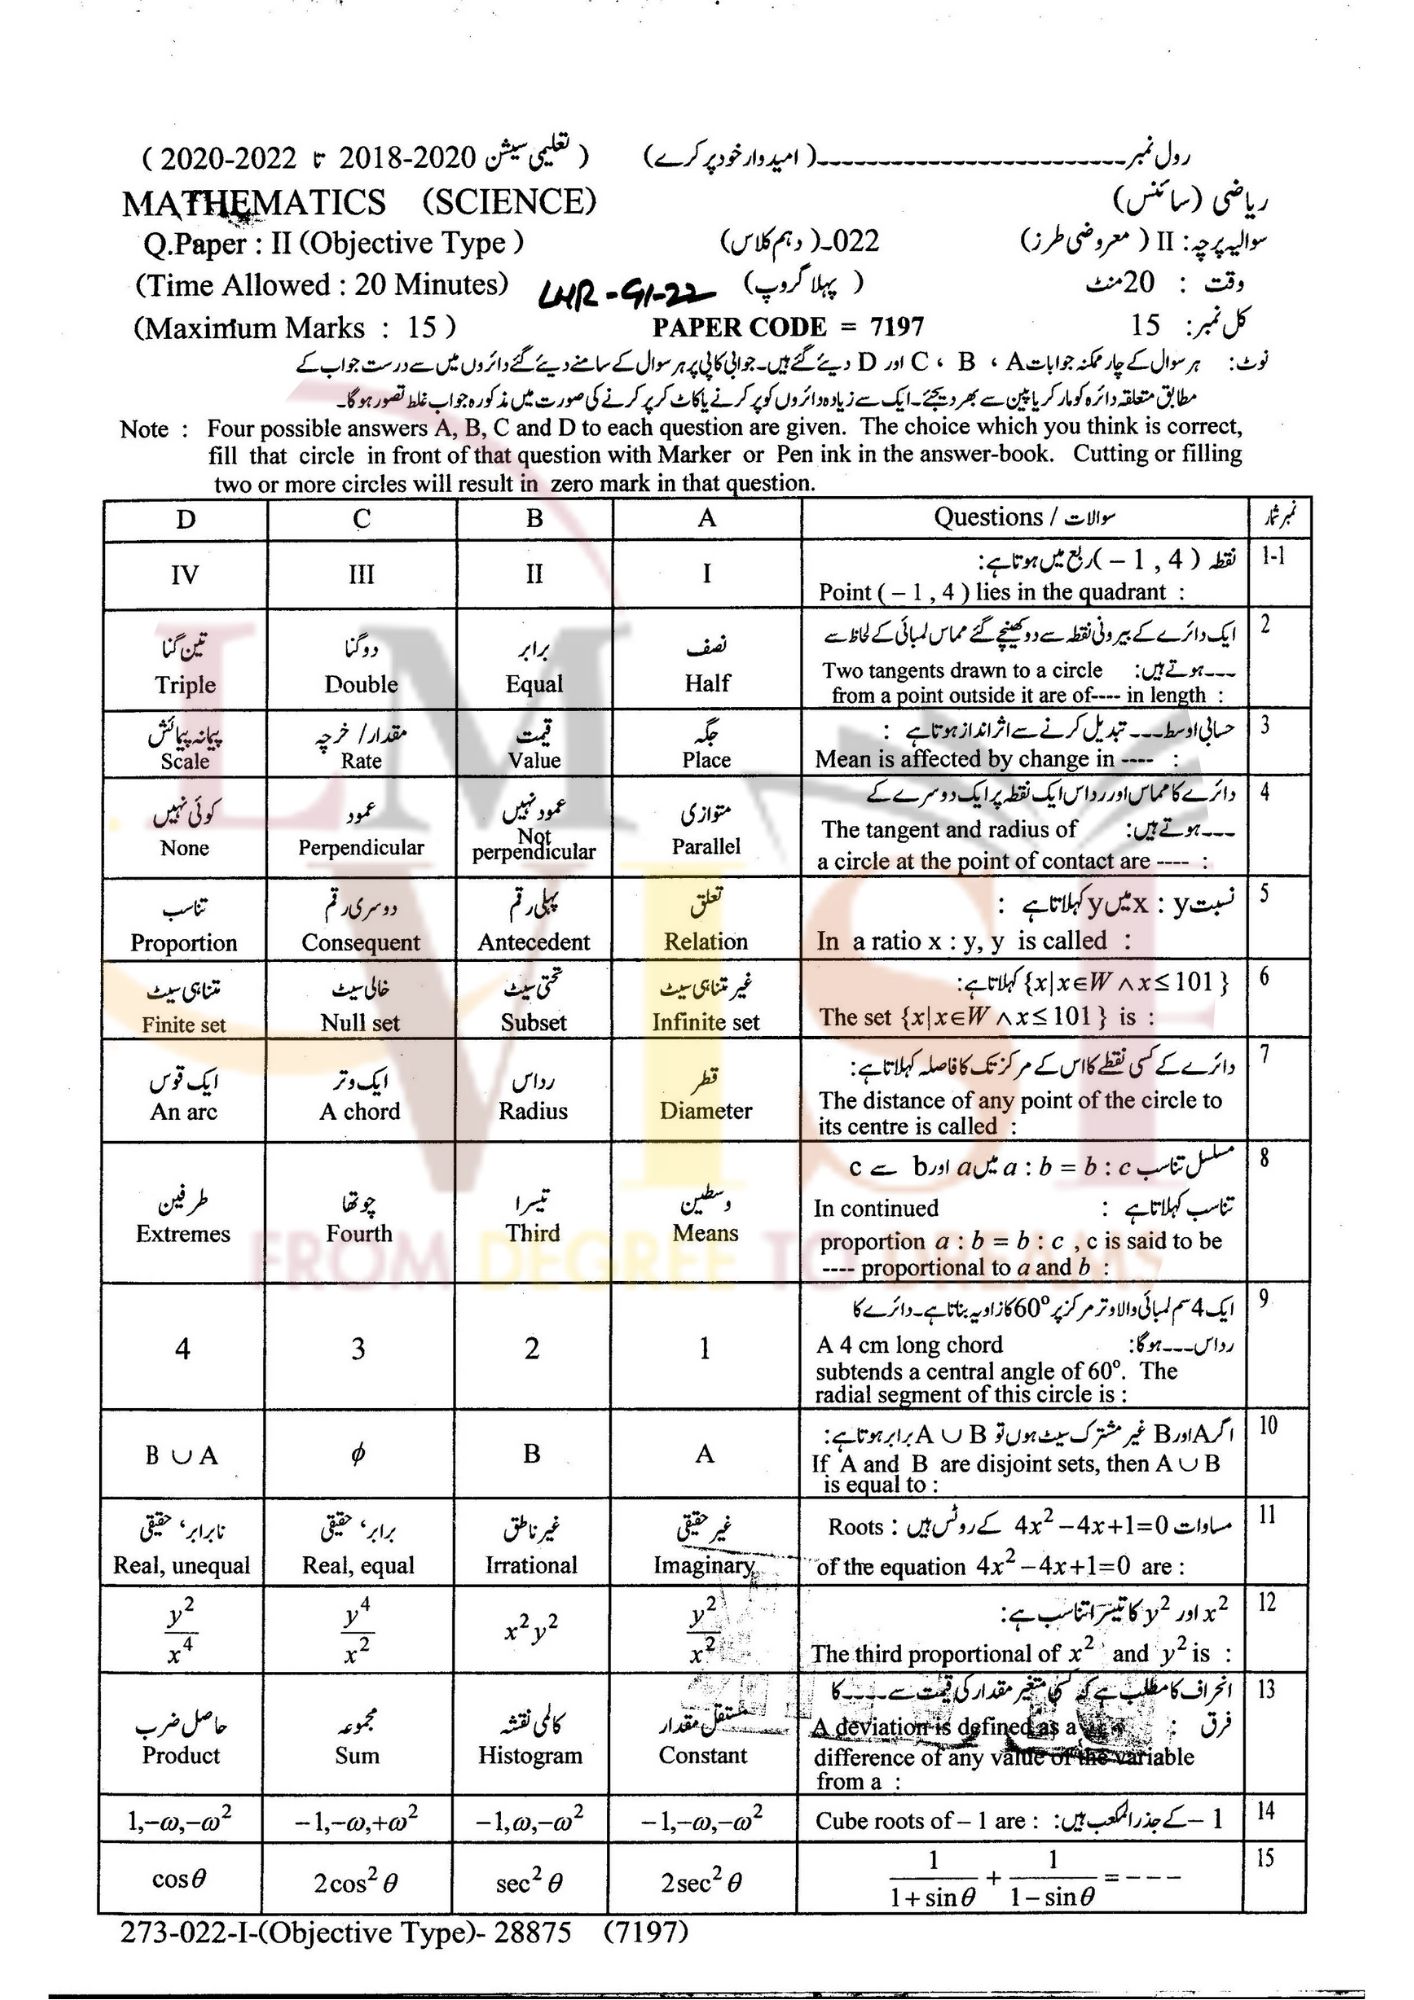 رول نمبر ـــــــــــــــــــــــــ (امیدوار خود پر کرے) (تعلیمی سیشن 2018-2020 تا 2020-2022)
ریاضی (سائنس) MATHEMATICS (SCIENCE)
سوالیہ پرچہ : II (معروضی طرز) 022ـ(دہم کلاس) Q.Paper : II (Objective Type )
وقت : 20 منٹ (پہلا گروپ) LHR-G1-22 (Time Allowed : 20 Minutes)
کل نمبر: 15 PAPER CODE = 7197 (Maximum Marks : 15 )
نوٹ: ہر سوال کے چار ممکنہ جوابات A ، B ، C اور D دیئے گئے ہیں۔ جوابی کاپی پر ہر سوال کے سامنے دیئے گئے دائروں میں سے درست جواب کے
مطابق متعلقہ دائرہ کو مارکر یا پین سے بھر دیجئے۔ ایک سے زیادہ دائروں کو پر کرنے یا کاٹ کر پر کرنے کی صورت میں مذکورہ جواب غلط تصور ہوگا۔
Note : Four possible answers A, B, C and D to each question are given. The choice which you think is correct,
fill that circle in front of that question with Marker or Pen ink in the answer-book. Cutting or filling
two or more circles will result in zero mark in that question.
D C B A Questions / سوالات نمبر شمار
1-1 نقطہ ( – 1 , 4 ) ربع میں ہوتا ہے:
IV III II I Point ( – 1 , 4 ) lies in the quadrant :
2 ایک دائرے کے بیرونی نقطہ سے دو کھینچے گئے مماس لمبائی کے لحاظ سے
تین گنا دوگنا برابر نصف
Triple Double Equal Half Two tangents drawn to a circle ---ہوتے ہیں:
from a point outside it are of---- in length :
3 حسابی اوسط --- تبدیل کرنے سے اثر انداز ہوتا ہے :
پیمانہ پیمائش مقدار/ خرچہ قیمت جگہ
Scale Rate Value Place Mean is affected by change in ---- :
4 دائرے کا مماس اور رداس ایک نقطہ پر ایک دوسرے کے
کوئی نہیں عمود عمود نہیں متوازی
The tangent and radius of ---ہوتے ہیں:
None Perpendicular Not perpendicular Parallel a circle at the point of contact are ---- :
5 نسبت x : y میں y کہلاتا ہے :
تناسب دوسری رقم پہلی رقم تعلق
Proportion Consequent Antecedent Relation In a ratio x : y, y is called :
6 {x|x∈W ∧ x≤101 } کہلاتا ہے:
متناہی سیٹ خالی سیٹ تحتی سیٹ غیر متناہی سیٹ
Finite set Null set Subset Infinite set The set {x|x∈W ∧ x≤101 } is :
7 دائرے کے کسی نقطے کا اس کے مرکز تک کا فاصلہ کہلاتا ہے:
ایک قوس ایک وتر رداس قطر
An arc A chord Radius Diameter The distance of any point of the circle to
its centre is called :
8 مسلسل تناسب a : b = b : c میں a اور b سے c
طرفین چوتھا تیسرا وسطین
In continued تناسب کہلاتا ہے :
Extremes Fourth Third Means proportion a : b = b : c , c is said to be
---- proportional to a and b :
9 ایک 4 سم لمبائی والا وتر مرکز پر 60° کا زاویہ بناتا ہے۔ دائرے کا
4 3 2 1 A 4 cm long chord رداس---ہوگا:
subtends a central angle of 60°. The
radial segment of this circle is :
10 اگر A اور B غیر مشترک سیٹ ہوں تو A ∪ B برابر ہوتا ہے:
B ∪ A ϕ B A If A and B are disjoint sets, then A ∪ B
is equal to :
11 مساوات 4x²–4x+1=0 کے روٹس ہیں : Roots
نابرابر، حقیقی برابر، حقیقی غیر ناطق غیر حقیقی
Real, unequal Real, equal Irrational Imaginary of the equation 4x²–4x+1=0 are :
12 x² اور y² کا تیسرا تناسب ہے:
y²/x⁴ y⁴/x² x²y² y²/x² The third proportional of x² and y² is :
13 انحراف کا مطلب ہے کہ کسی متغیر مقدار کی قیمت سے ---- کا
حاصل ضرب مجموعہ کالمی نقشہ مستقل مقدار
A deviation is defined as a فرق :
Product Sum Histogram Constant difference of any value of the variable
from a :
1,–ω,–ω² –1,–ω,+ω² –1,ω,–ω² –1,–ω,–ω² Cube roots of – 1 are : – 1 کے جذر المکعب ہیں: 14
cosθ 2cos²θ sec²θ 2sec²θ 1/(1+sinθ) + 1/(1–sinθ) = – – – 15
273-022-I-(Objective Type)- 28875 (7197)
LM
VISI
FROM DEGREE TO DREAMS